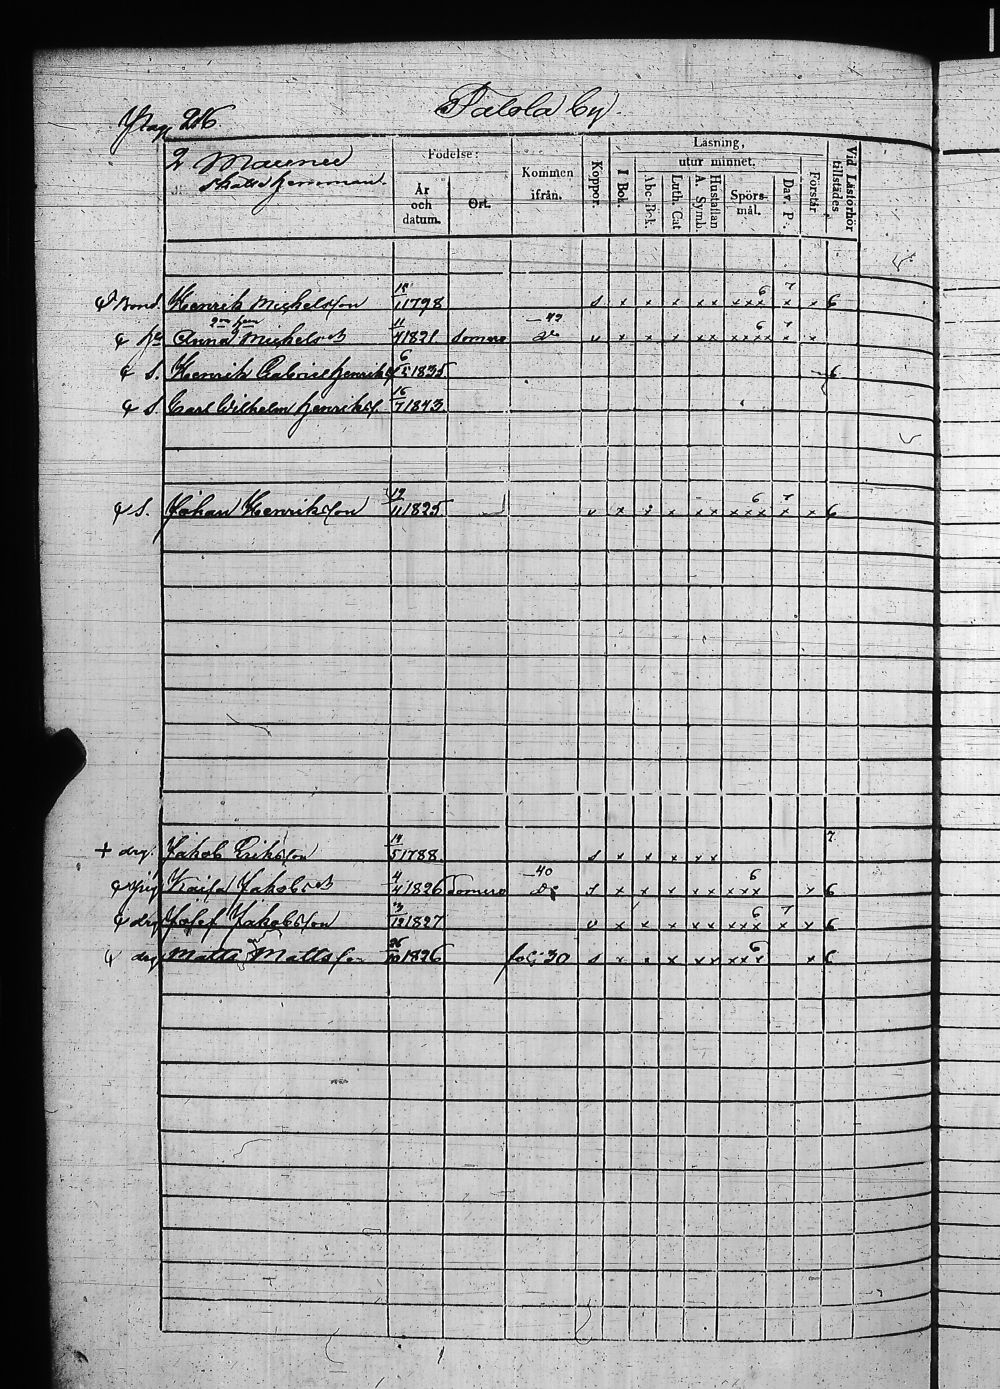 Talola by.
Pag. 216
2 Maunu
Skatte hemman.
Födelse:
År
och
datum.
Ort.
Kommen
ifrån.
Koppor.
Läsning,
I Bok.
utur minnet.
Abc-Bok.
Luth. Cat
Hustaflan
A. Symb.
Spörs-
mål.
Dav. P.
Förstår
Vid Läsförhör
tillstädes
Bond. Henrik Michelsson 11 1798 s x x x xx xxx 6 7 x x 6
Anna Michelsd. 11/4 1821. Somero 42 v x x x xx xxxx 6 7 x x
S. Henrik Gabriel Henriks. 1835 6
S. Carl Wilhelm Henriks. 16/7 1843
S. Johan Henriksson 12/11 1825 v x x x xx xxx 6 7 x x 6
+ drg. Jakob Eriksson 5 1788 s x x x xx 7.
Kaisa Jakobsd. 4/4 1826 Somero 40 s x x x xx xxx 6 x 6
drg Josef Jakobsson 3/12 1827 v x x x xx xxx 6 7 x x 6
drg Matts Mattsson 26/10 1826 fol. 30 s x x x xx xxx 6 x 6